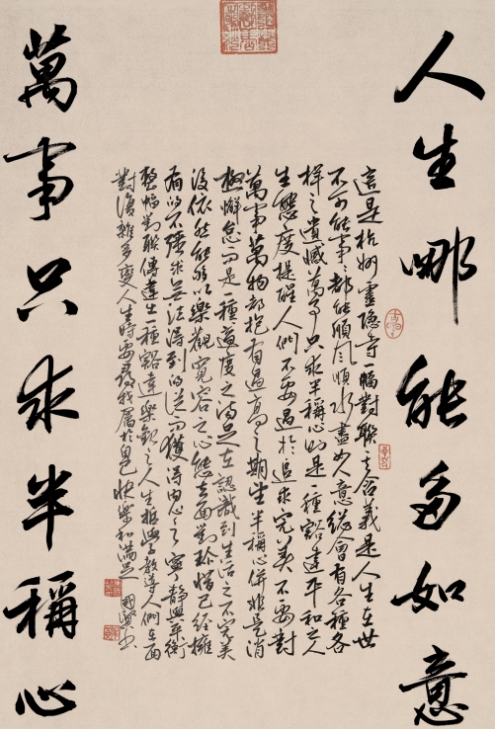 人生哪能多如意
這是杭州靈隱寺一幅對聯其含義是人生在世
不可能事事都能順風順水盡如人意總會有各種各
樣之遺憾萬事只求半稱心則是一種豁達平和之人
生態度提醒人們不要過於追求完美不要對
萬事萬物都抱有過高之期望半稱心併非是消
極懈怠而是一種適度之滿足在認識到生活之不完美
後依然能夠以樂觀寬容之心態去面對珍惜已經擁
有的不強求無法得到的從而獲得內心之寧靜與平衡
整幅對聯傳達出一種豁達樂觀之人生哲學教導人們在面
對復雜多變人生時要尋找屬於自己快樂和滿足
萬事只求半稱心